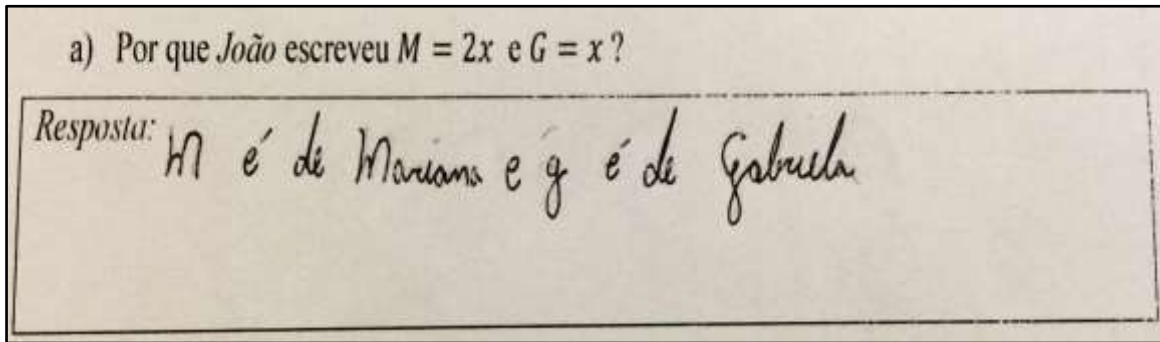 a) Por que João escreveu M = 2x e G = x ?
Resposta: M é de Mariana e g é de Gabriela